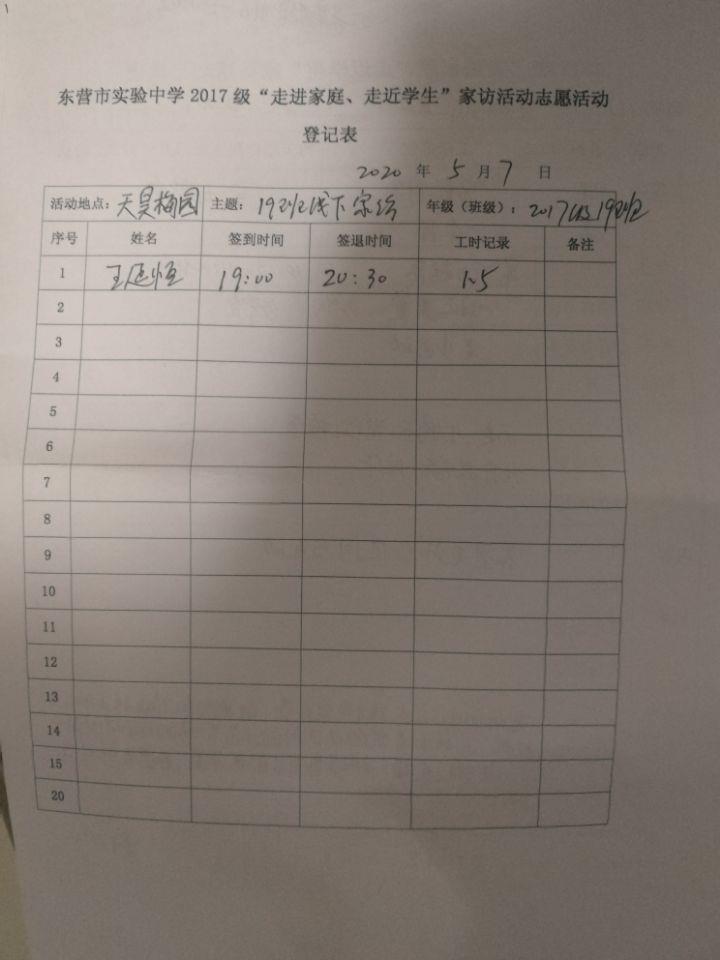 东营市实验中学2017级“走进家庭、走近学生”家访活动志愿活动
登记表
2020 年 5 月 7 日
活动地点：天昊梅园 主题：19班线下家访 年级（班级）：2017级19班
序号 姓名 签到时间 签退时间 工时记录 备注
1 王延恒 19:00 20:30 1.5
2
3
4
5
6
7
8
9
10
11
12
13
14
15
20